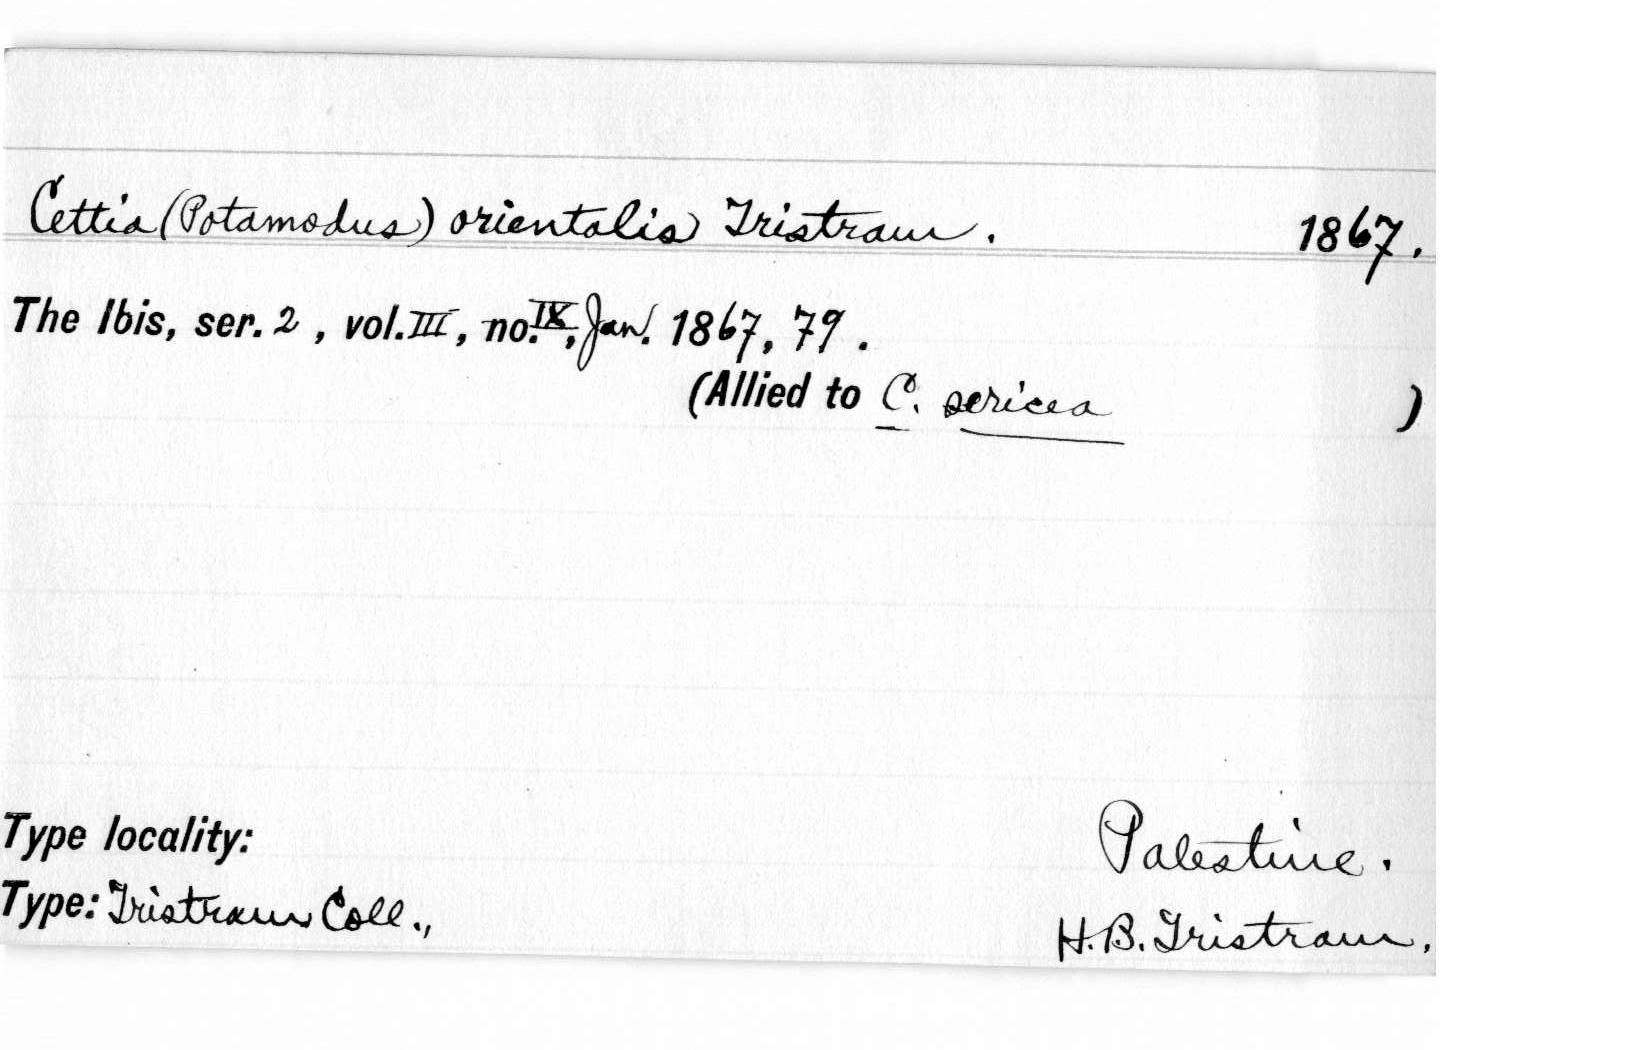 Cettia (Potamodus) orientalis Tristram. 1867.
The Ibis, ser. 2, vol. III, no. IX, Jan. 1867, 79.
(Allied to C. sericea )
Type locality: Palestine.
Type: Tristram Coll., H.B. Tristram.